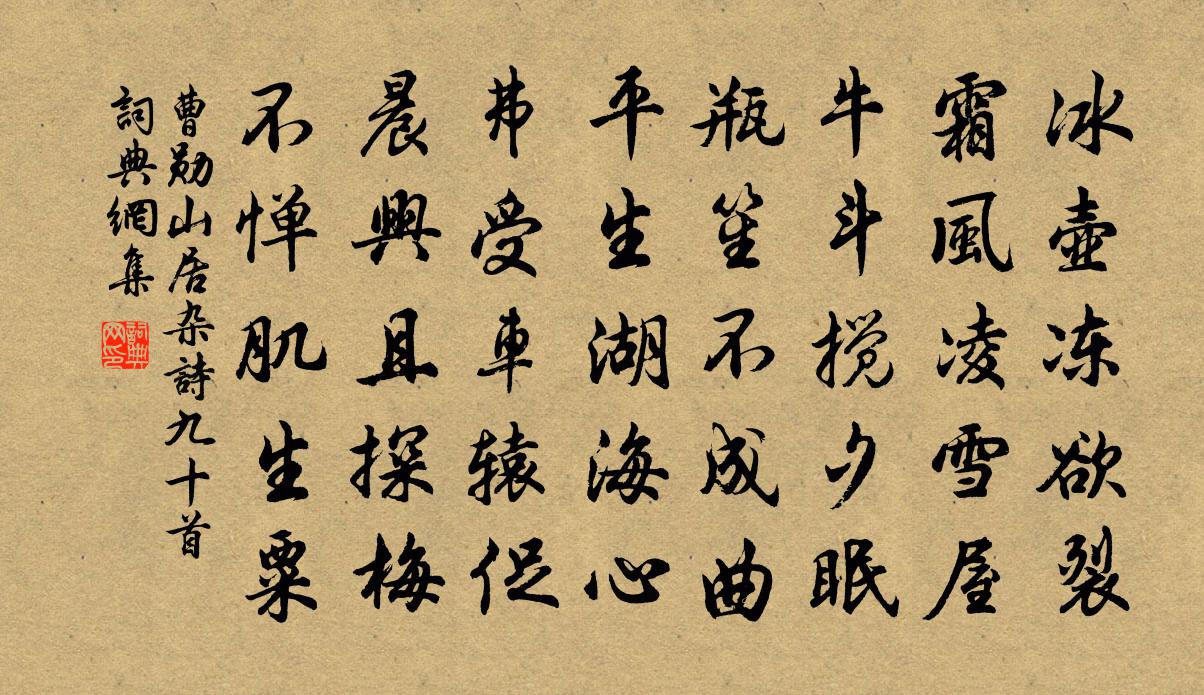 冰壺冻欲裂
霜風凌雪屋
牛斗搅夕眠
瓶笙不成曲
平生湖海心
弗受車辕促
晨興且探梅
不惮肌生粟
曹勋山居杂詩九十首
詞典網集
詞典网印